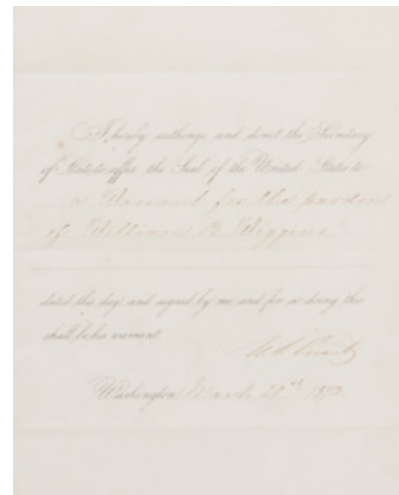 I hereby authorize and direct the Secretary
of State to affix the Seal of the United States to
a Warrant for the pardon
of William B. Wiggins
dated this day and signed by me and for so doing this
shall be his warrant.
U.S. Grant
Washington March 20th